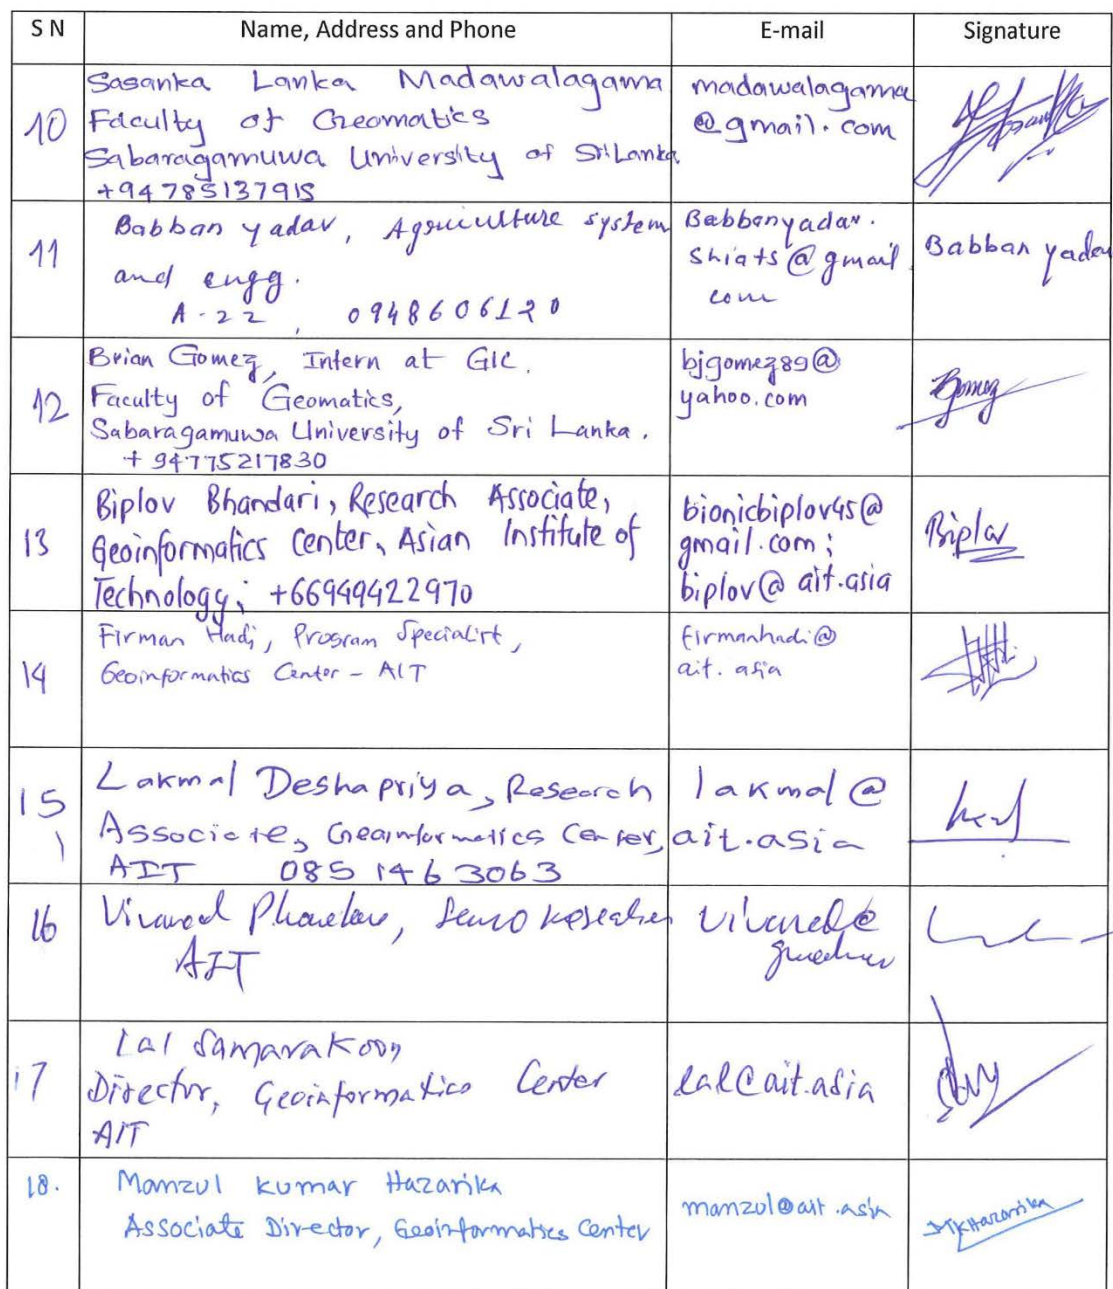 S N Name, Address and Phone E-mail Signature
10
Sasanka Lanka Madawalagama
Faculty of Geomatics
Sabaragamuwa University of Sri Lanka
+94 785137915
madawalagama
@gmail.com
11
Babban yadav, Agriculture system
and engg.
A-22, 0948606120
Babbanyadav.
shiats@gmail.
com
Babban yadav
12
Brian Gomez, Intern at GIC.
Faculty of Geomatics,
Sabaragamuwa University of Sri Lanka.
+ 94775217830
bjgomez89@
yahoo.com
Gomez
13
Biplov Bhandari, Research Associate,
Geoinformatics Center, Asian Institute of
Technology; +66949422970
bionicbiplov45@
gmail.com;
biplov@ait.asia
Biplov
14
Firman Hadi, Program Specialist,
Geoinformatics Center - AIT
firmanhadi@
ait.asia
15
Lakmal Deshapriya, Research
Associate, Geoinformatics Center,
AIT 085 146 3063
lakmal@
ait.asia
16
AIT
17
Lal Samarakoon
Director, Geoinformatics Center
AIT
lal@ait.asia
18.
Manzul Kumar Hazarika
Associate Director, Geoinformatics Center
manzul@ait.asia
MKHazarika